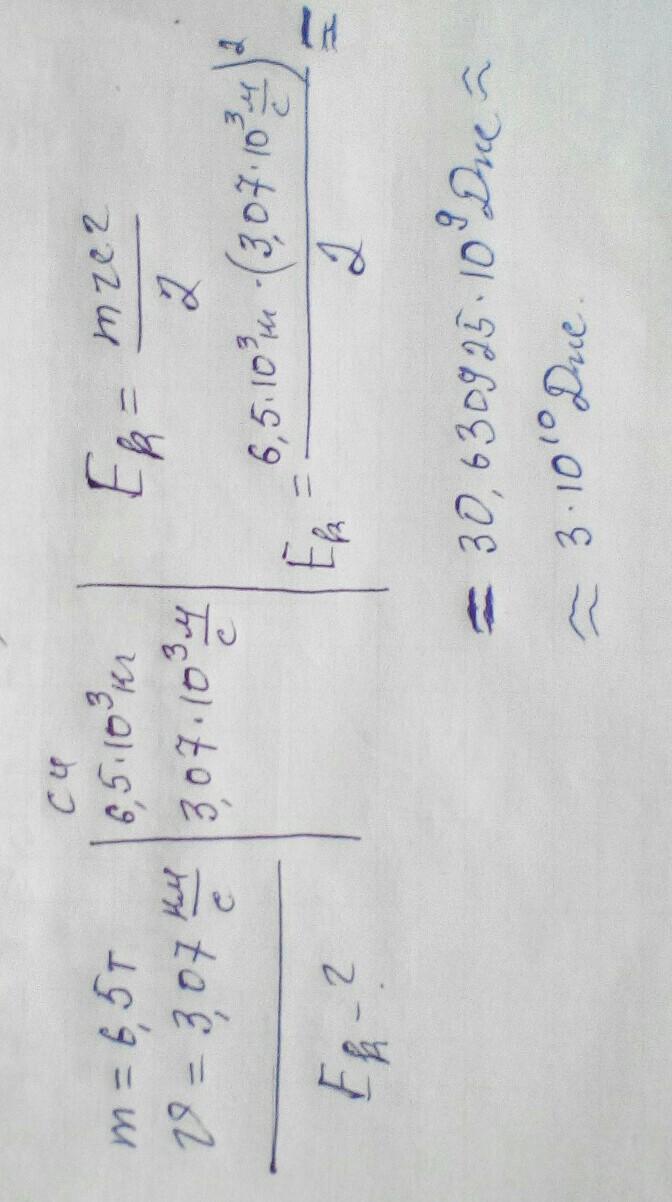 m = 6,5т
υ = 3,07 км/с
E_k - ?
СИ
6,5·10³кг
3,07·10³ м/с
E_k = mυ²/2
E_k = 6,5·10³кг·(3,07·10³ м/с)²/2 =
= 30,630925·10⁹Дже ≈
≈ 3·10¹⁰Дже.